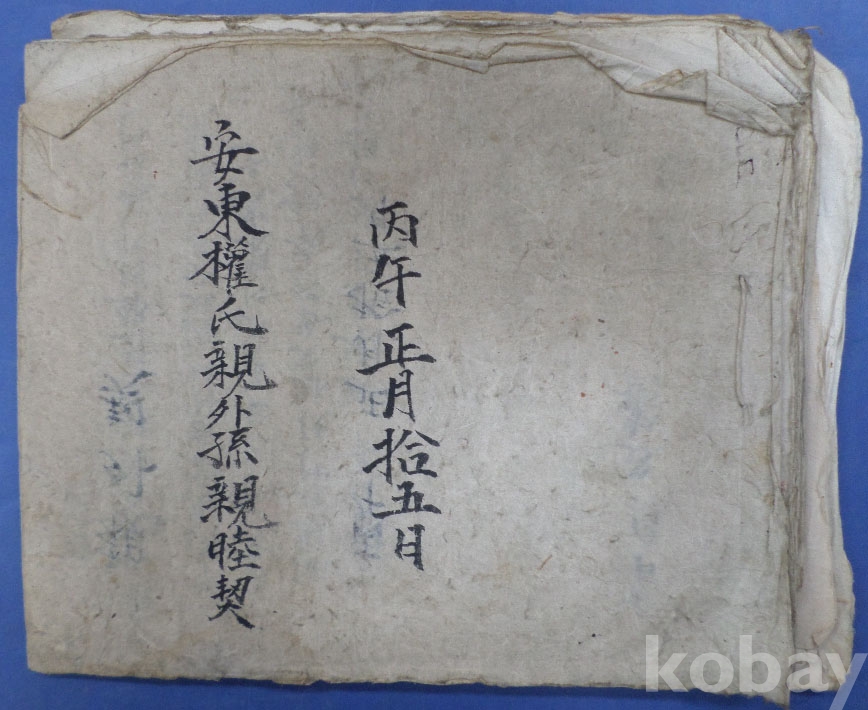 丙午正月拾五日
安東權氏親外孫親睦契
kobay